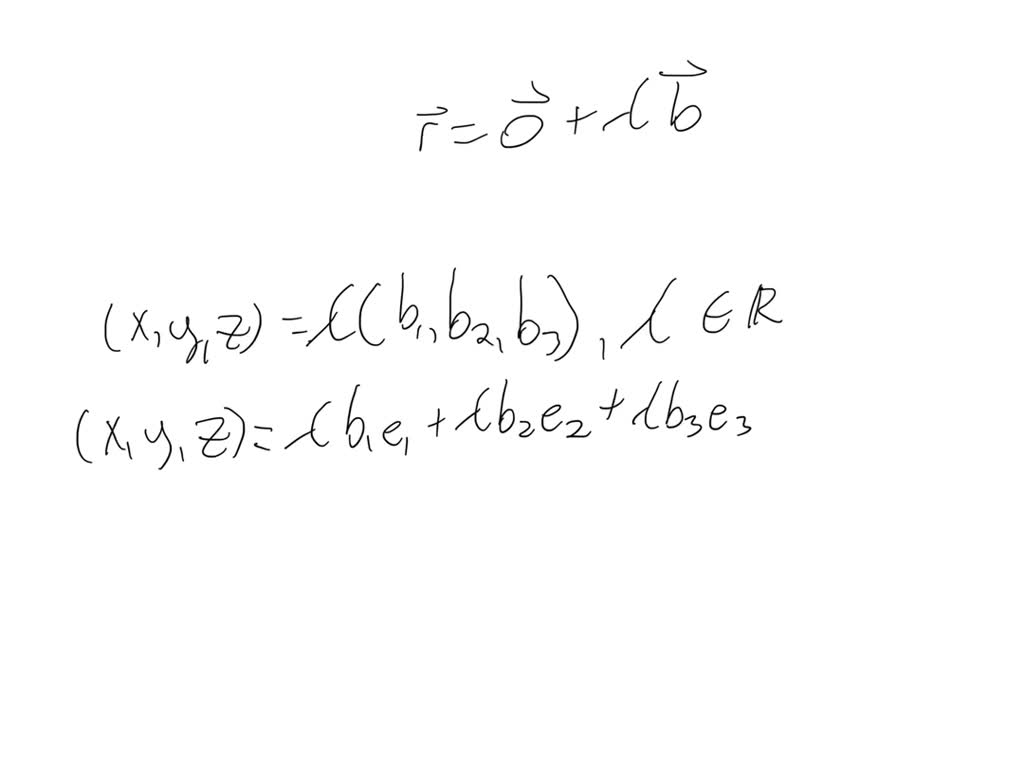 r⃗ = o⃗ + λb⃗
(x, y, z) = λ(b₁, b₂, b₃), λ ∈ ℝ
(x, y, z) = λb₁e₁ + λb₂e₂ + λb₃e₃